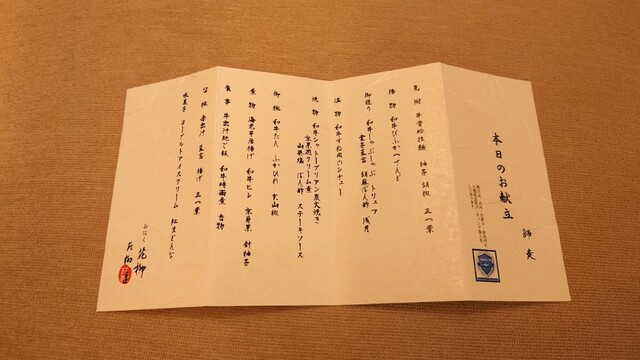 本日のお献立
師走
先附 牛骨拉麺 柚子胡椒 三つ葉
揚物 和牛びふかつさんど
御造り 和牛しゃぶしゃぶ トリュフ
胡麻ぽん酢 浅月
温物 和牛すね肉のシチュー
焼物 和牛シャトーブリアン炭火焼き
クリーム煮
ぽん酢 ステーキソース
御椀 和牛たん ふかひれ 実山椒
煮物 海老芋唐揚げ 和牛ヒレ 針柚子
食事 牛出汁鯛ご飯 和牛時雨煮 香物
留椀 赤出汁 豆富 揚げ 三つ葉
水菓子 ヨーグルトアイスクリーム 紅まどんな
おにく 花柳